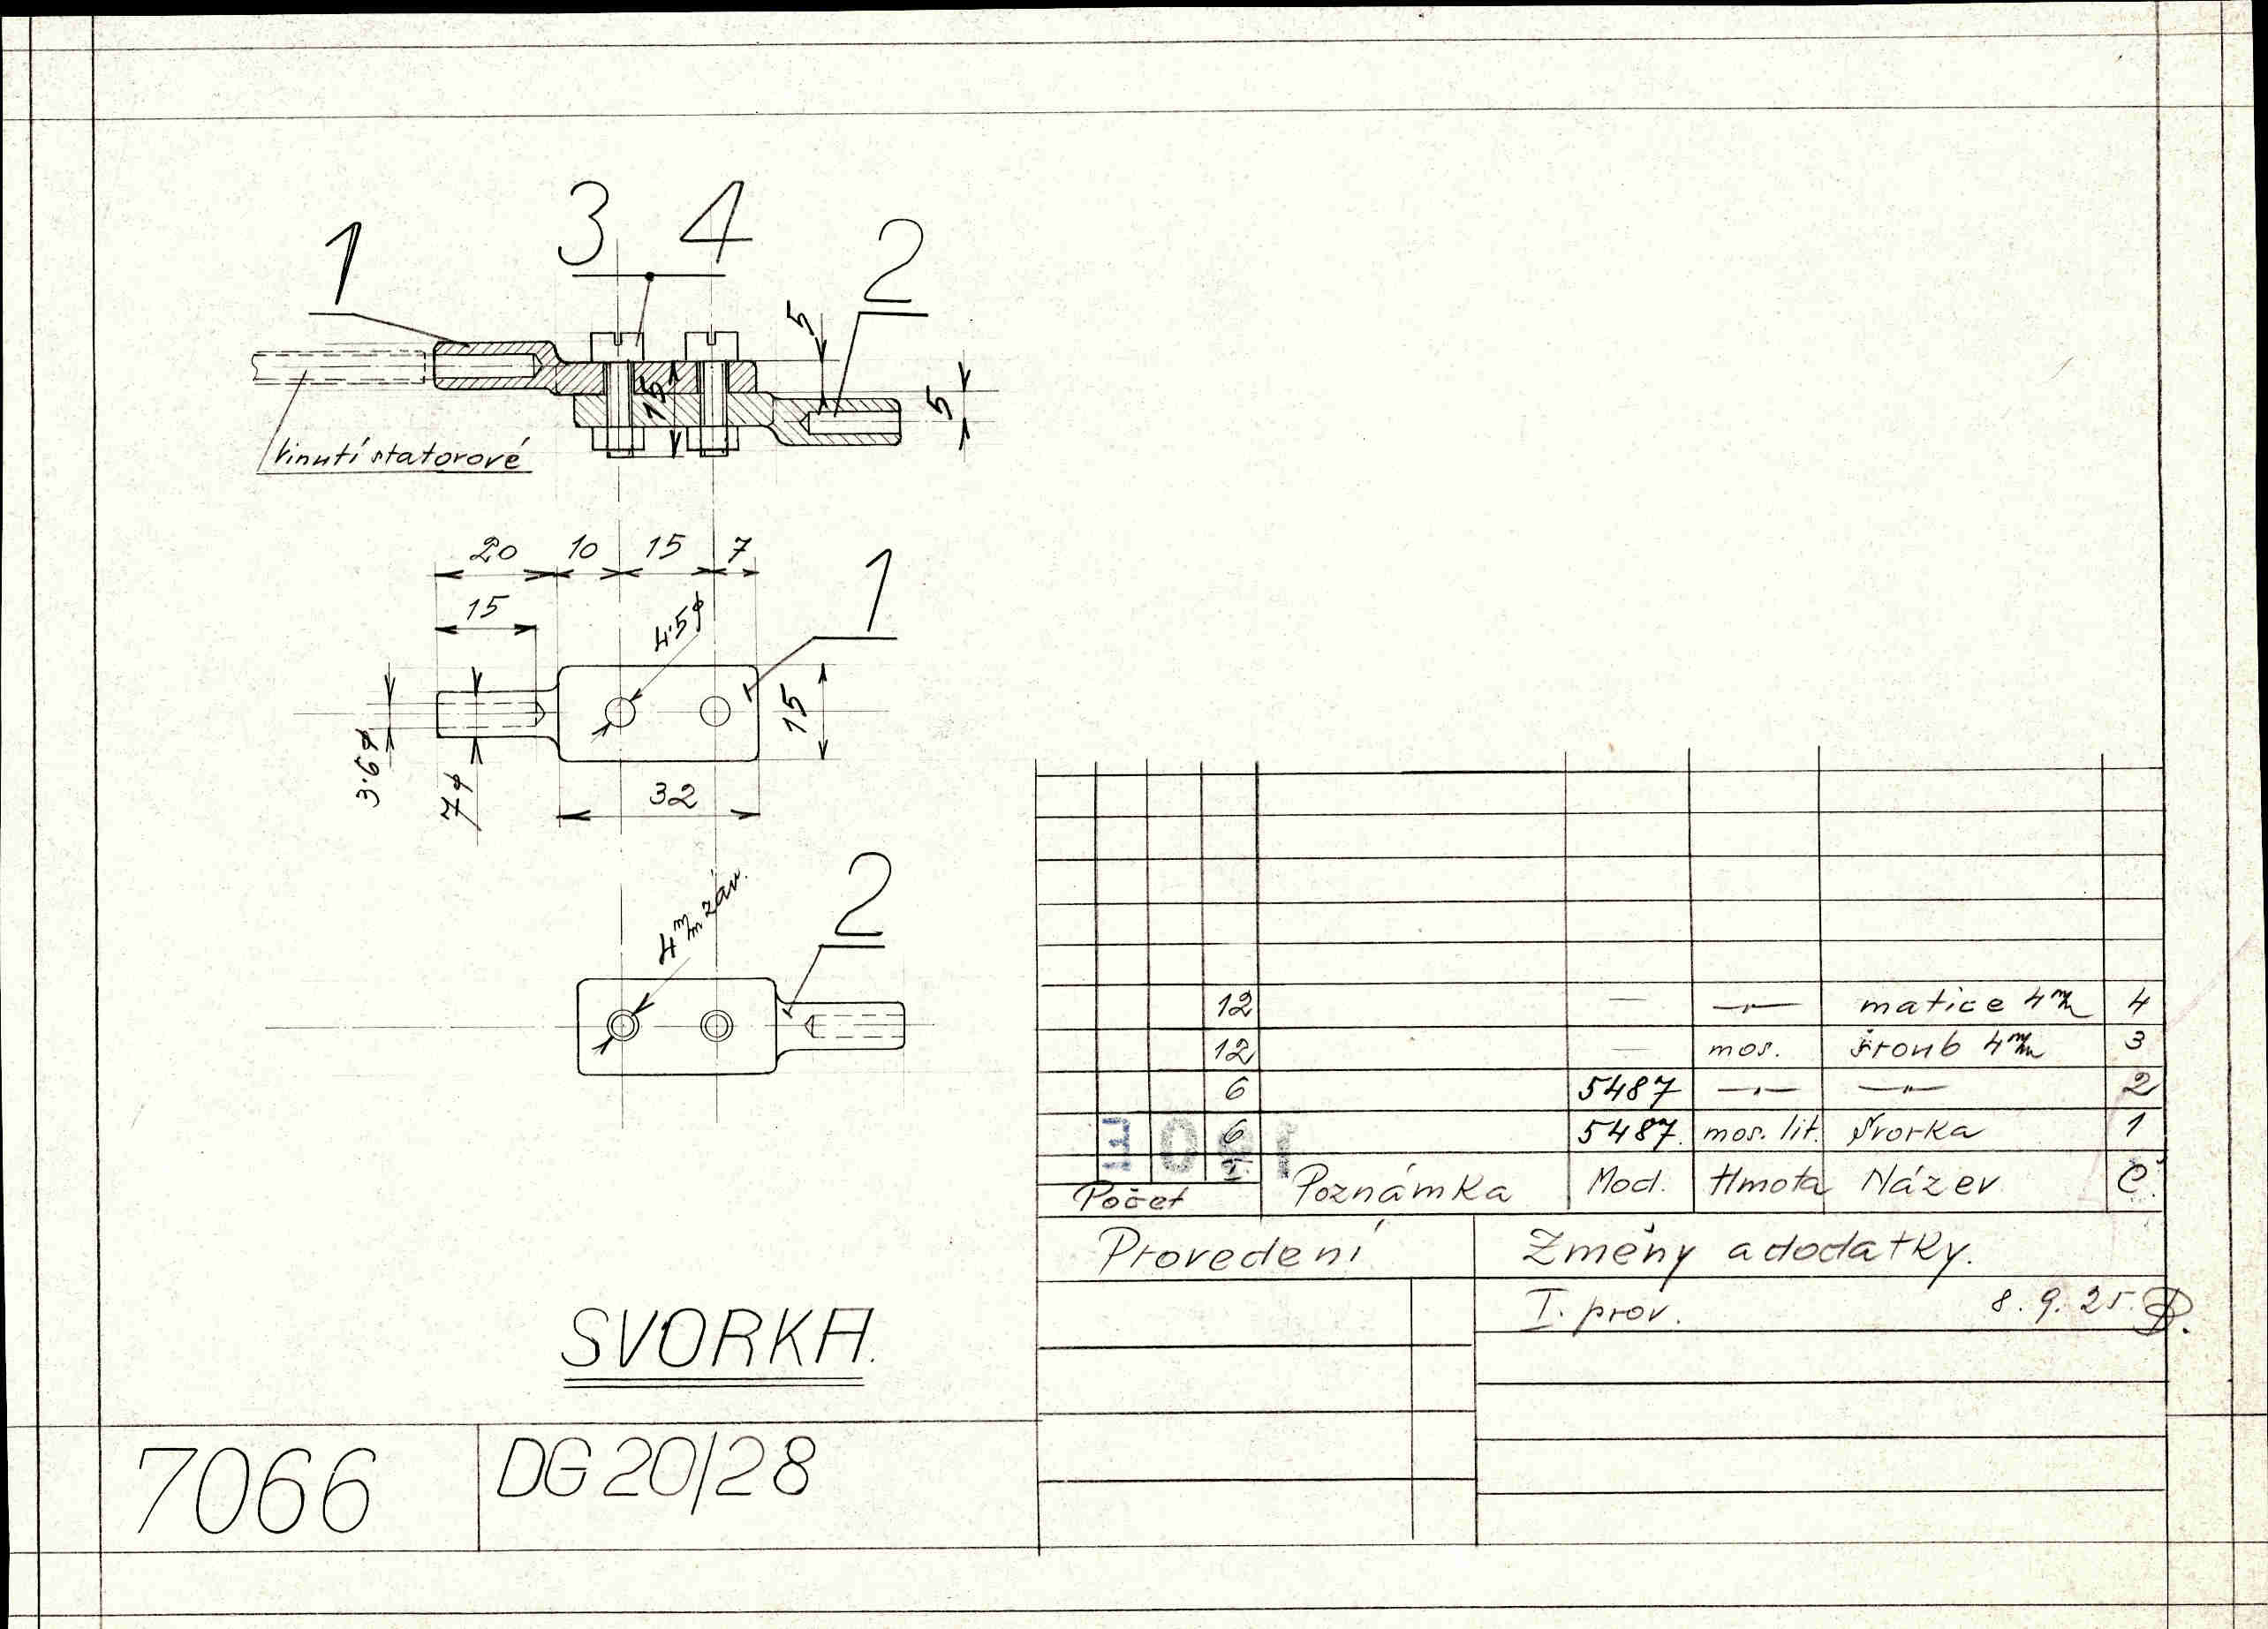 3 4
1
2
5
5
15
vinutí statorové
20 10 15 7
1
15
4·5φ
15
3·6φ
7φ
32
4 m/m záv.
2
12 — —„— matice 4 m/m 4
12 — mos. šroub 4 m/m 3
6 5487 —„— —„— 2
6 5487. mos. lit. Svorka 1
I.
Počet Poznámka Mod. Hmota Název Č.
Provedení Změny a dodatky.
I. prov. 8. 9. 25.
SVORKA.
7066 DG 20/28